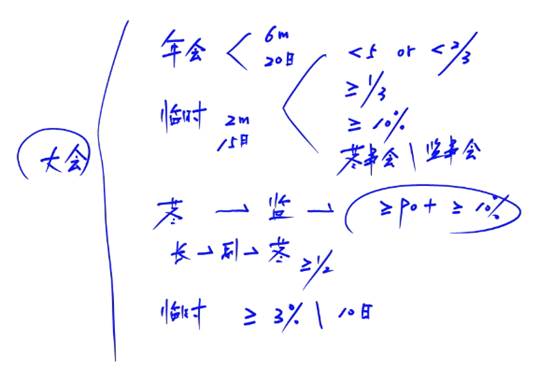 6m
年会 < 20日
<5 or <2/3
≥1/3
临时 2m
15日
≥10%
董事会 \ 监事会
大会
董 → 监 → ≥90+ ≥10%
长→副→董 ≥1/2
临时 ≥3% \ 10日